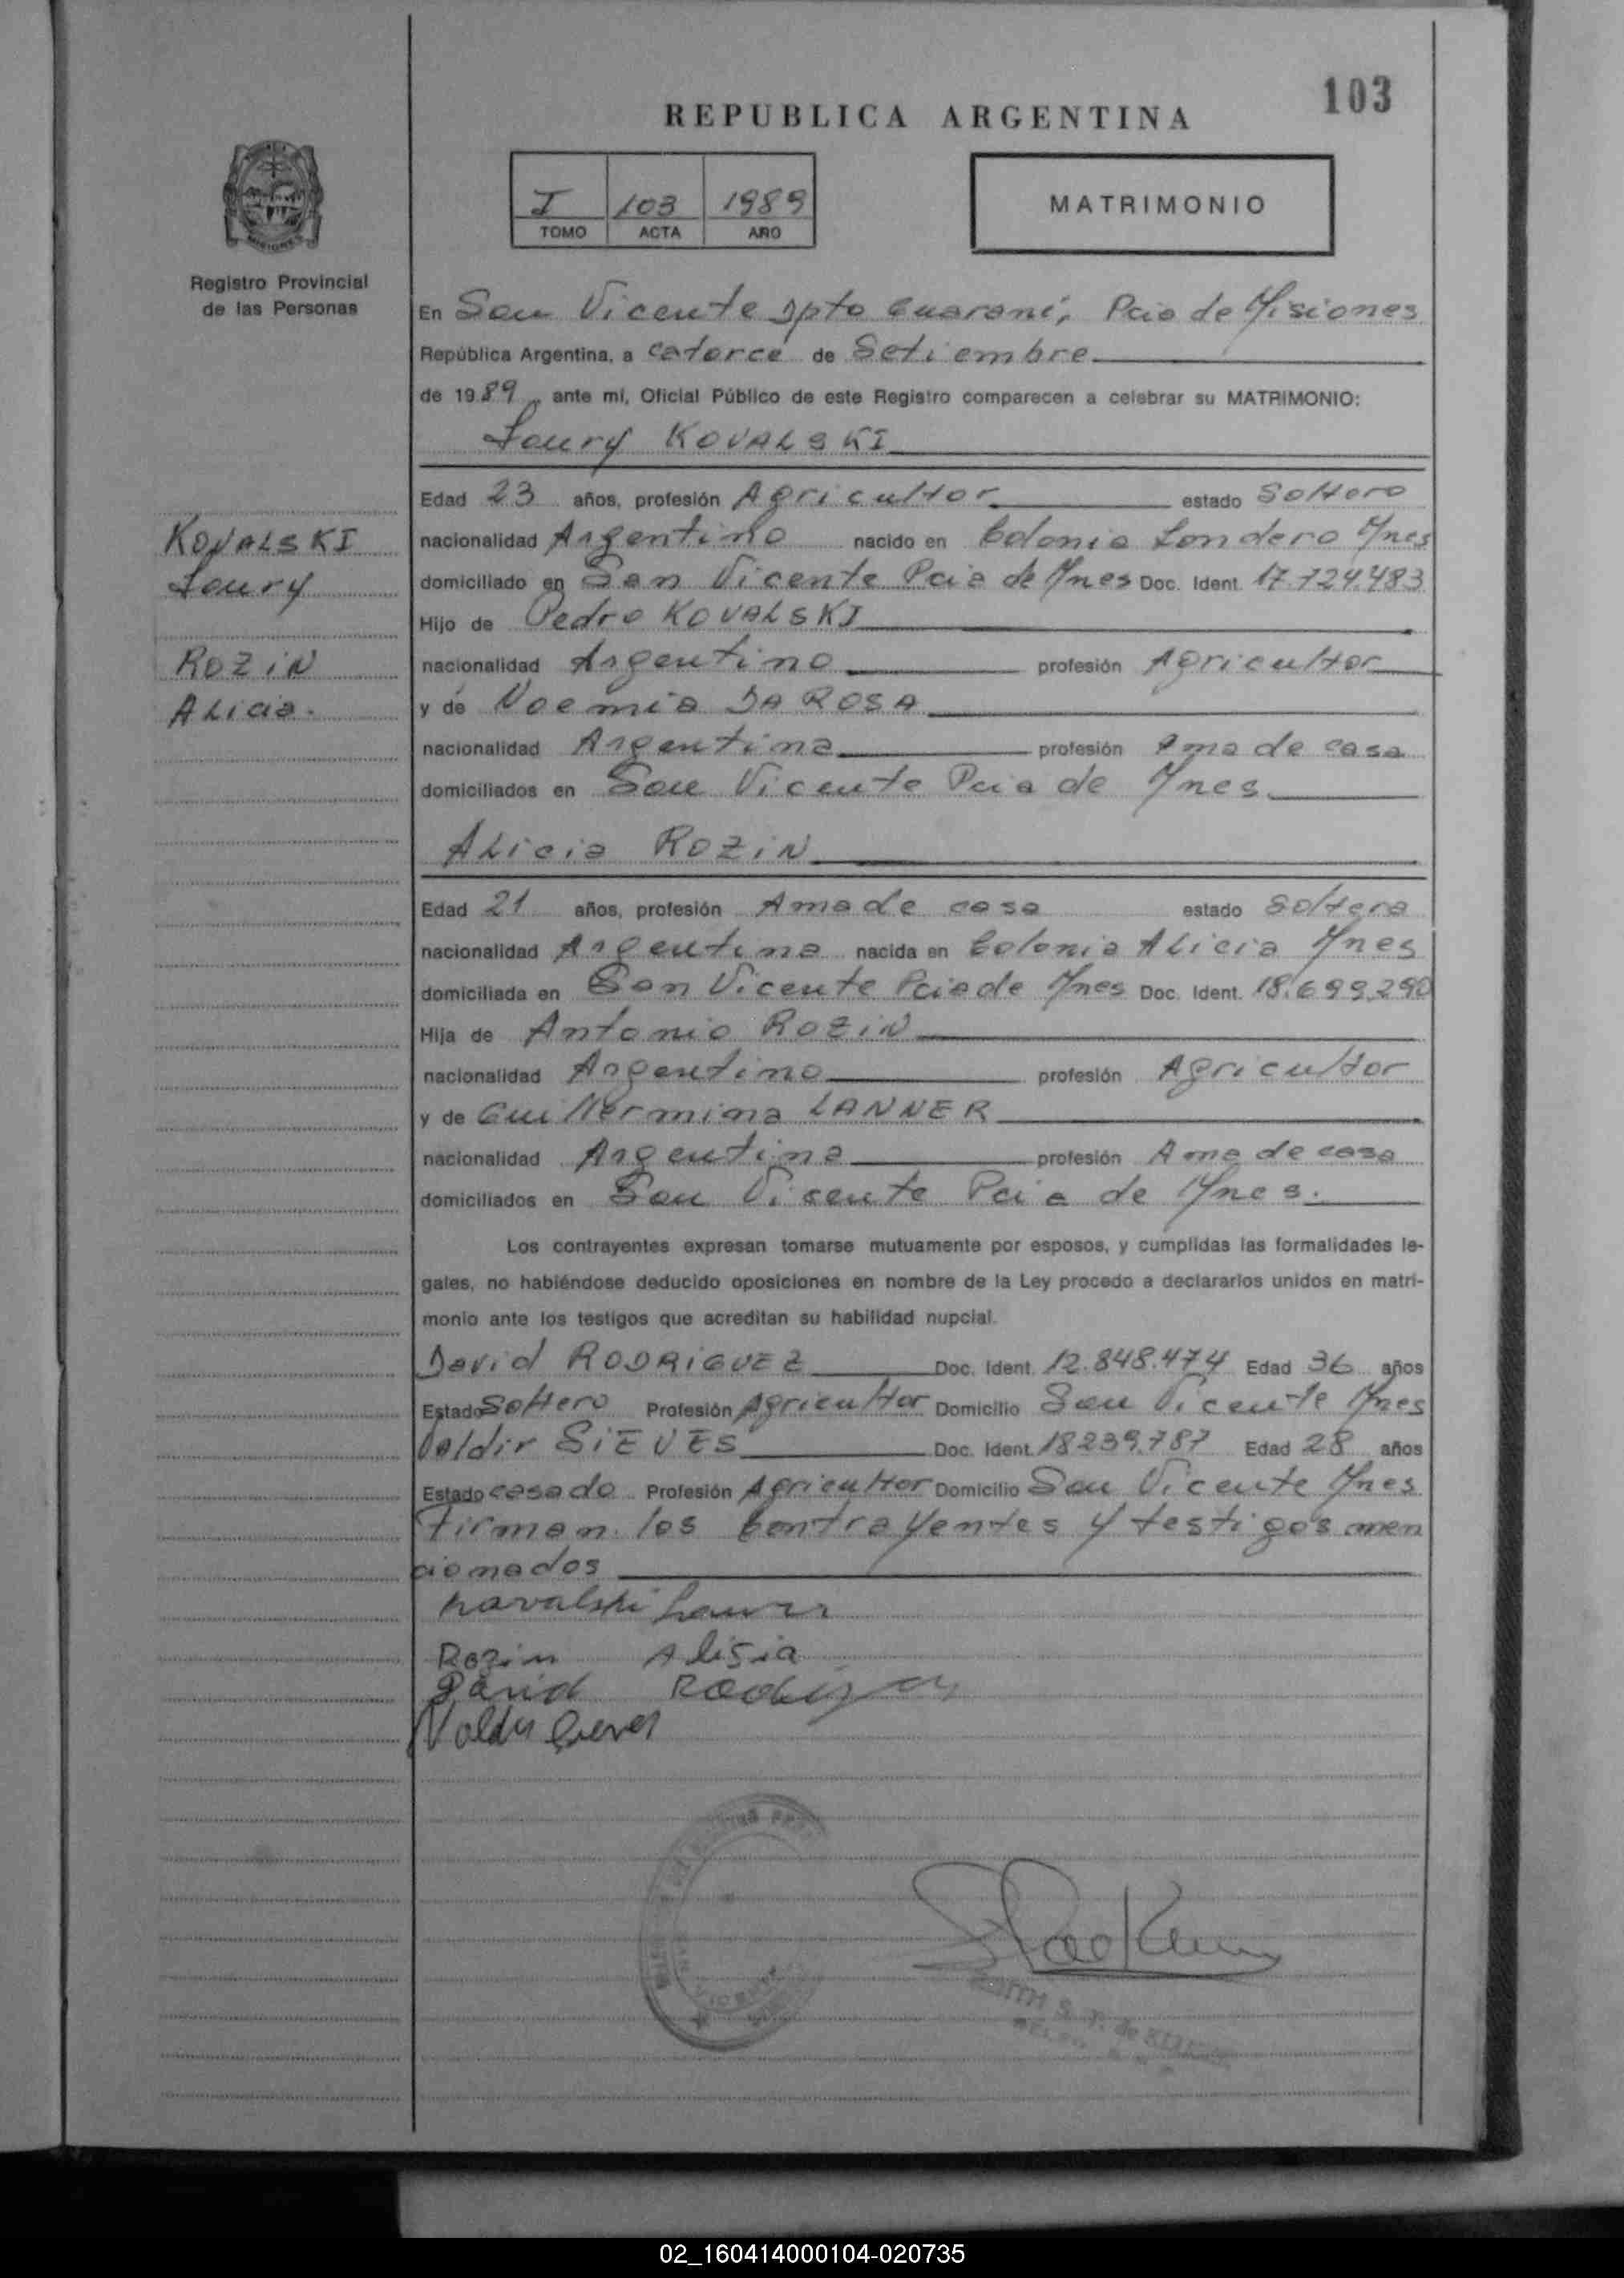 103
REPUBLICA ARGENTINA
I 103 1989
TOMO ACTA AÑO
MATRIMONIO
Registro Provincial
de las Personas
En San Vicente Dpto Guaraní, Pcia de Misiones
República Argentina, a catorce de Setiembre
de 1989 ante mí, Oficial Público de este Registro comparecen a celebrar su MATRIMONIO:
Loury KOVALSKI
Edad 23 años, profesión Agricultor estado Soltero
KOVALSKI
Loury
ROZIN
Alicia.
nacionalidad Argentino nacido en Colonia Londero Mnes
domiciliado en San Vicente Pcia de Mnes Doc. Ident. 17.724.483
Hijo de Pedro KOVALSKI
nacionalidad Argentino profesión Agricultor
y de Noemia DA ROSA
nacionalidad Argentina profesión Ama de casa
domiciliados en San Vicente Pcia de Mnes
Alicia ROZIN
Edad 21 años, profesión Ama de casa estado Soltera
nacionalidad Argentina nacida en Colonia Alicia Mnes
domiciliada en San Vicente Pcia de Mnes Doc. Ident. 18.699.290
Hija de Antonio ROZIN
nacionalidad Argentino profesión Agricultor
y de Guillermina LANNER
nacionalidad Argentina profesión Ama de casa
domiciliados en San Vicente Pcia de Mnes.
Los contrayentes expresan tomarse mutuamente por esposos, y cumplidas las formalidades le-
gales, no habiéndose deducido oposiciones en nombre de la Ley procedo a declararlos unidos en matri-
monio ante los testigos que acreditan su habilidad nupcial.
David RODRIGUEZ Doc. Ident. 12.848.474 Edad 36 años
Estado Soltero Profesión Agricultor Domicilio San Vicente Mnes
Valdir SIEVES Doc. Ident. 18239.787 Edad 28 años
Estado casado Profesión Agricultor Domicilio San Vicente Mnes
Firman los Contrayentes y testigos men
cionados
Kovalski
Rozin Alisia
David
Valdir
02_160414000104-020735